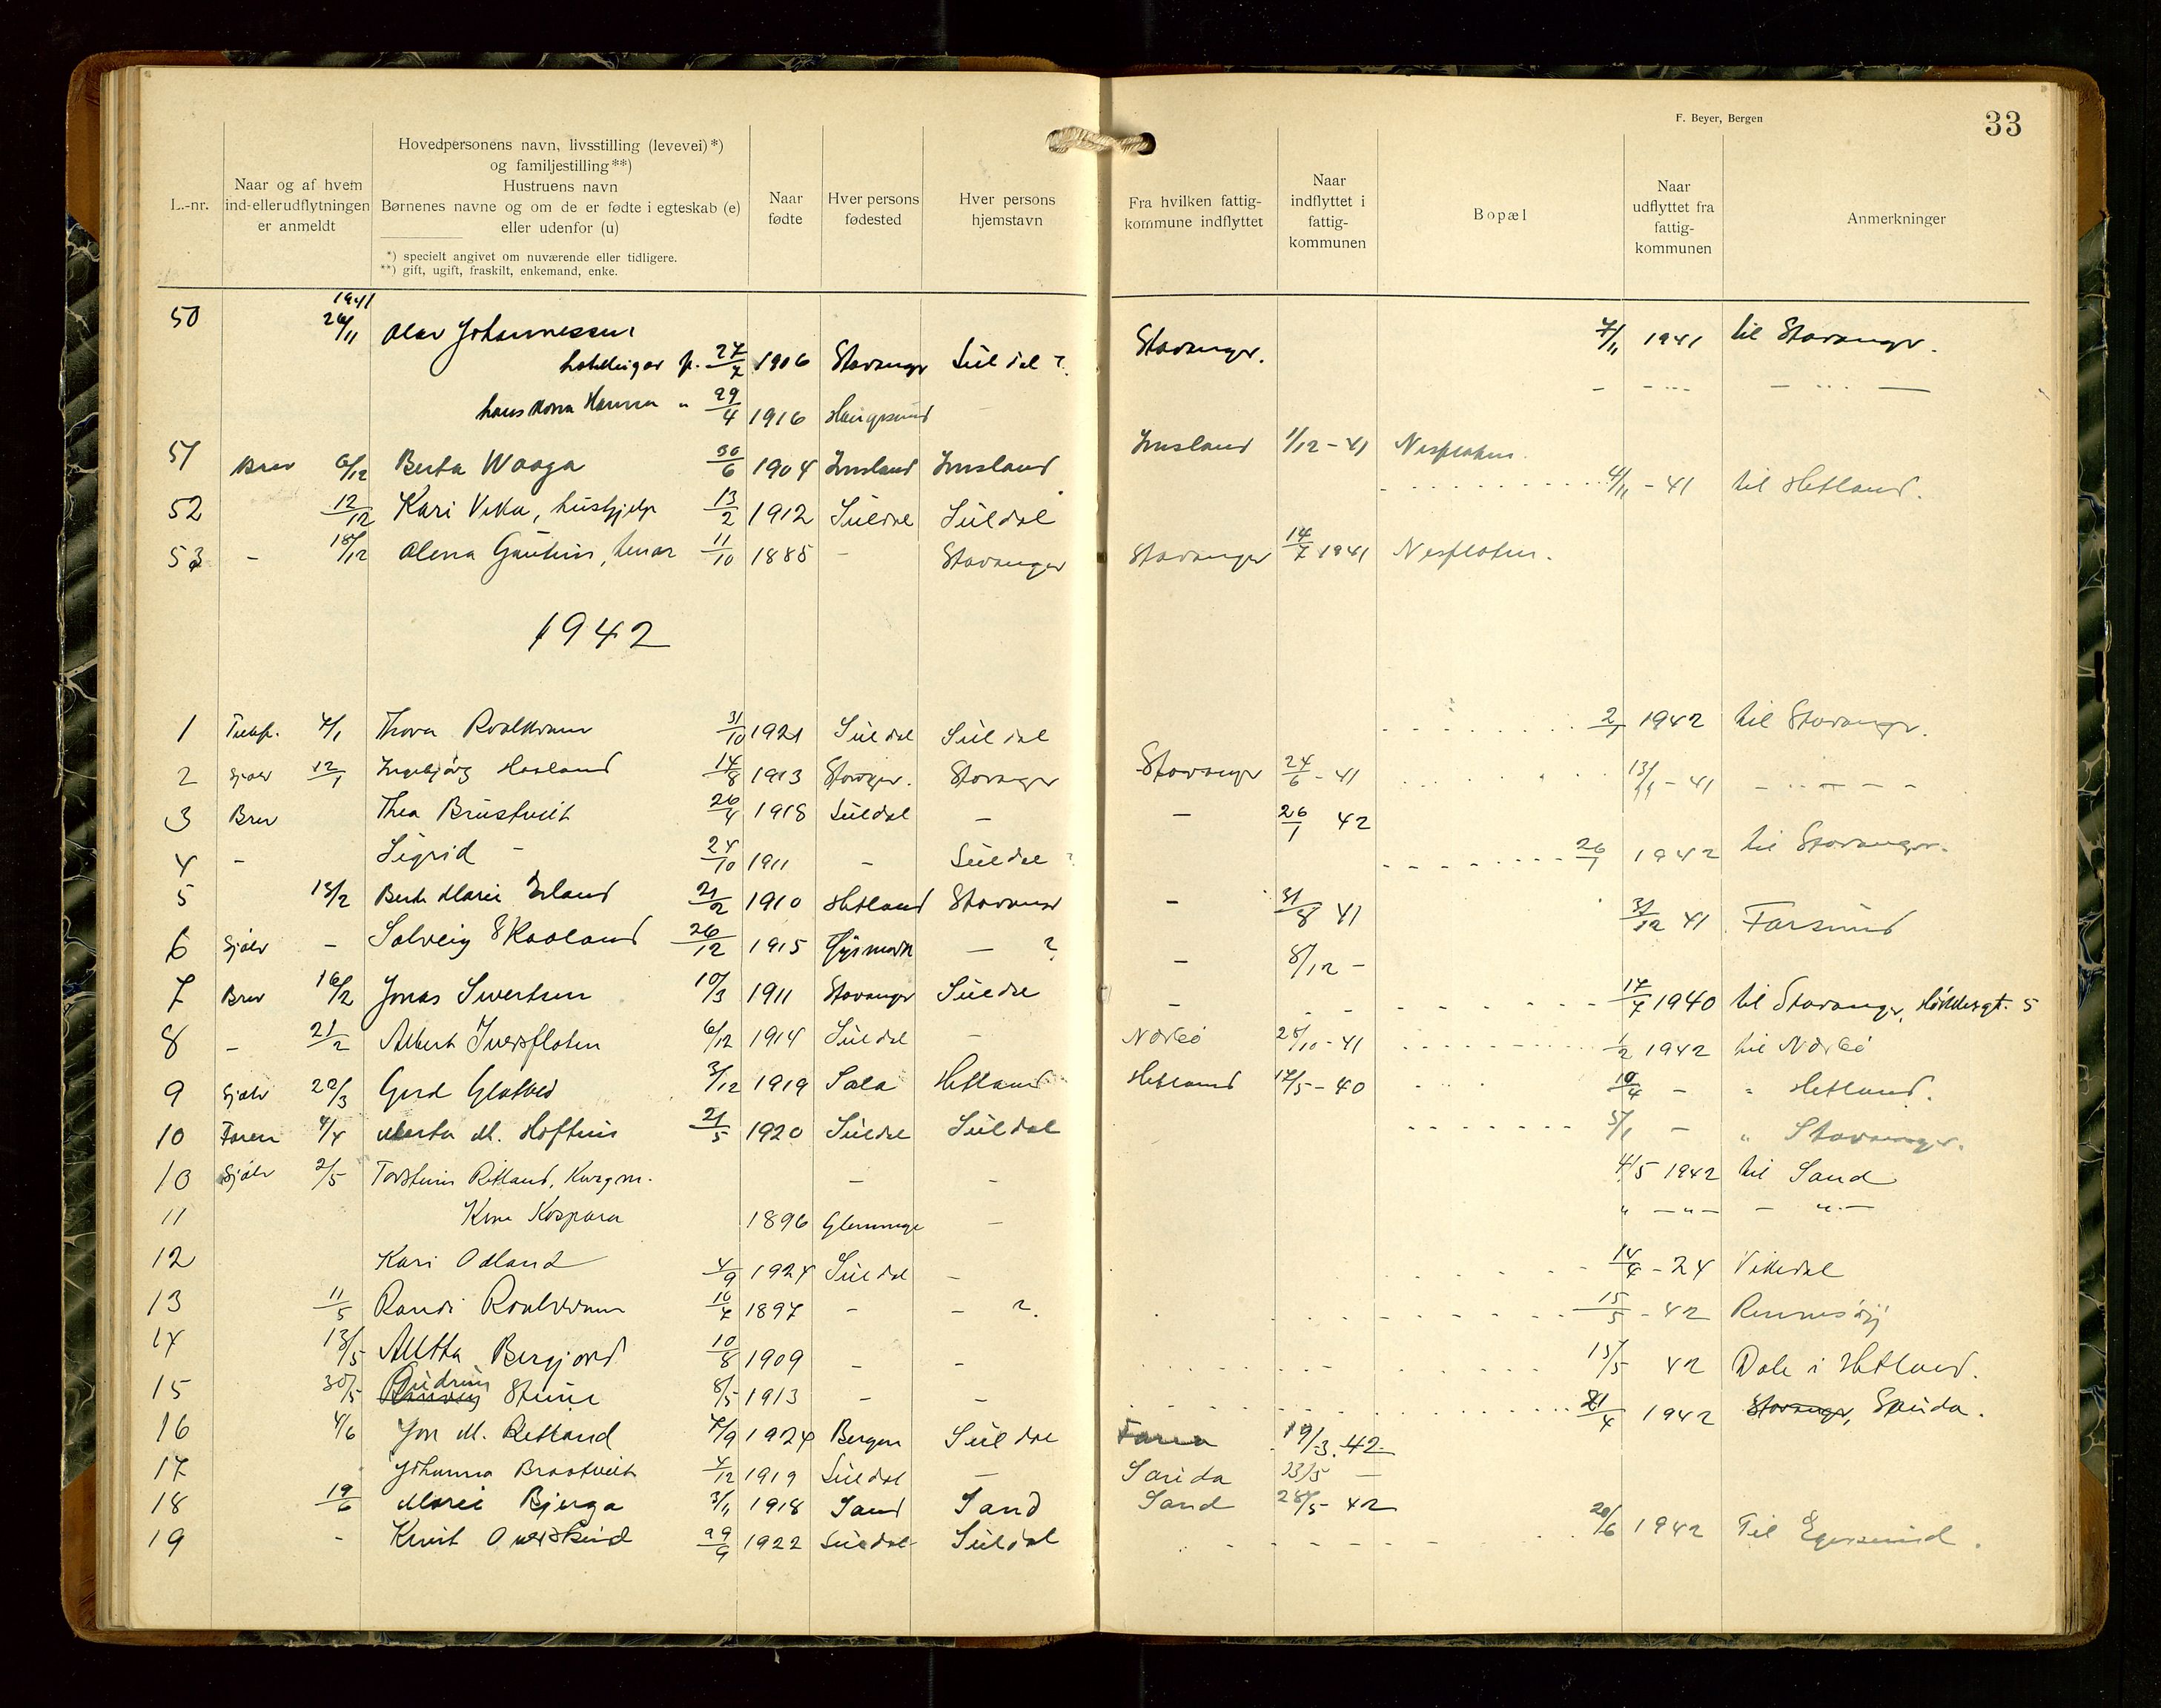 F. Beyer, Bergen
33
L.-nr.
Naar og af hvem ind- eller udflytningen er anmeldt
Hovedpersonens navn, livsstilling (levevei)*) og familjestilling**)
Hustruens navn
Børnenes navne og om de er fødte i egteskab (e) eller udenfor (u)
*) specielt angivet om nuværende eller tidligere.
**) gift, ugift, fraskilt, enkemand, enke.
Naar fødte
Hver persons fødested
Hver persons hjemstavn
Fra hvilken fattigkommune indflyttet
Naar indflyttet i fattigkommunen
Bopæl
Naar udflyttet fra fattigkommunen
Anmerkninger
50 1941 26/11 Olav Johannessen Stavanger. 7/11 1941 til Stavanger.
f. 27/7 1906 Stavanger Suldal ?
hans kona Hanna " 29/4 1916 Haugesund
51 Brev 6/12 Berta Waaga 30/6 1904 Imsland Imsland Imsland 1/12-41 Nesflaten
52 12/12 Kari Veka, hushjelp 13/2 1912 Suldal Suldal 4/11-41 til Hetland.
53 - 18/12 Olena Gautun, 11/10 1885 - Stavanger Stavanger 14/7 1941 Nesflaten.
1942
1 7/1 Thora Roalkvam 31/10 1921 Suldal Suldal 2/1 1942 til Stavanger.
2 Sjølv 12/1 Ingebjørg Haaland 14/8 1913 Stavger. Stavager Stavanger 24/6-41 13/11-41 - " - - -
3 Brev Thea Brustveit 26/4 1918 Suldal - - 26/1 42
4 - Sigrid - 24/10 1911 - Suldal ? 26/1 1942 til Stavanger.
5 13/2 Berta Marie Erland 21/2 1910 Hetland Stavanger - 31/8 41 31/12 41 Farsund
6 Sjølv - Solveig Skaaland 26/12 1915 - ? - 8/12 -
7 Brev 16/2 Jonas Sivertsen 10/3 1911 Stavanger Suldal - 17/7 1940 til Stavanger, 5
8 - 21/2 Albert Iversflaten 6/12 1914 Suldal - Nærbö 28/10-41 1/2 1942 til Nærbö
9 Sjølv 20/3 Gerd Glatved 3/12 1919 Sola Hetland Hetland 17/5-40 10/4 - " Hetland.
10 Faren 7/4 Marta M. Hoftun 21/5 1920 Suldal Suldal 5/1 - " Stavanger.
10 Sjølv 2/5 Torstein Ritland, - - 4/5 1942 til Sand
11 Kona Kaspara 1896 Glemminge - " - " - - " -
12 Kari Odland 4/9 1924 Suldal - 14/4-24 Vikedal
13 11/5 Randi Roalkvam 16/7 1897 - - ? 15/5-42 Rennesöy
14 13/5 Bergjord 10/8 1909 - - 15/5 42 Dale i Hetland.
15 30/5 Gudrun Steine 8/5 1913 - - 21/4 1942 Stavanger, Sauda.
16 4/6 Jon M. Retland 7/9 1924 Bergen Suldal Fana 19/3.42
17 Johanna Braatveit 4/12 1919 Suldal - Sauda 23/5 -
18 19/6 Marie Bjerga 3/11 1918 Sand Sand Sand 28/5-42
19 - Knut Overskeid 29/9 1922 Suldal Suldal 20/6 1942 Til Egersund.